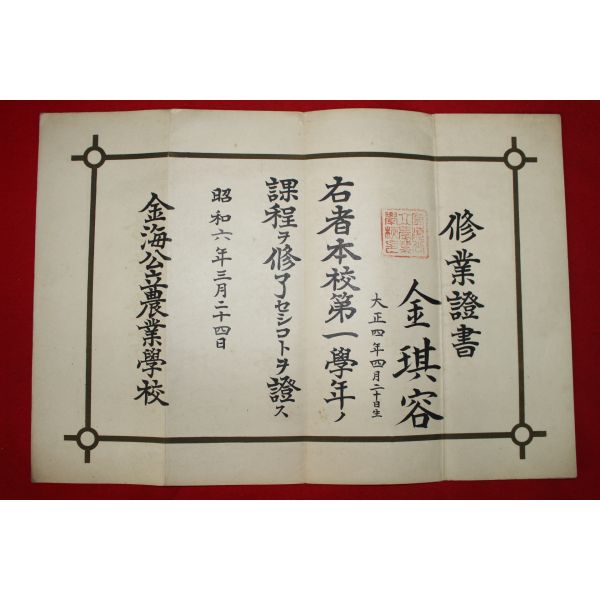 修業證書
金琪容
大正四年四月二十日生
右者本校第一學年ノ
課程ヲ修了セシコトヲ證ス
昭和六年三月二十四日
金海公立農業學校